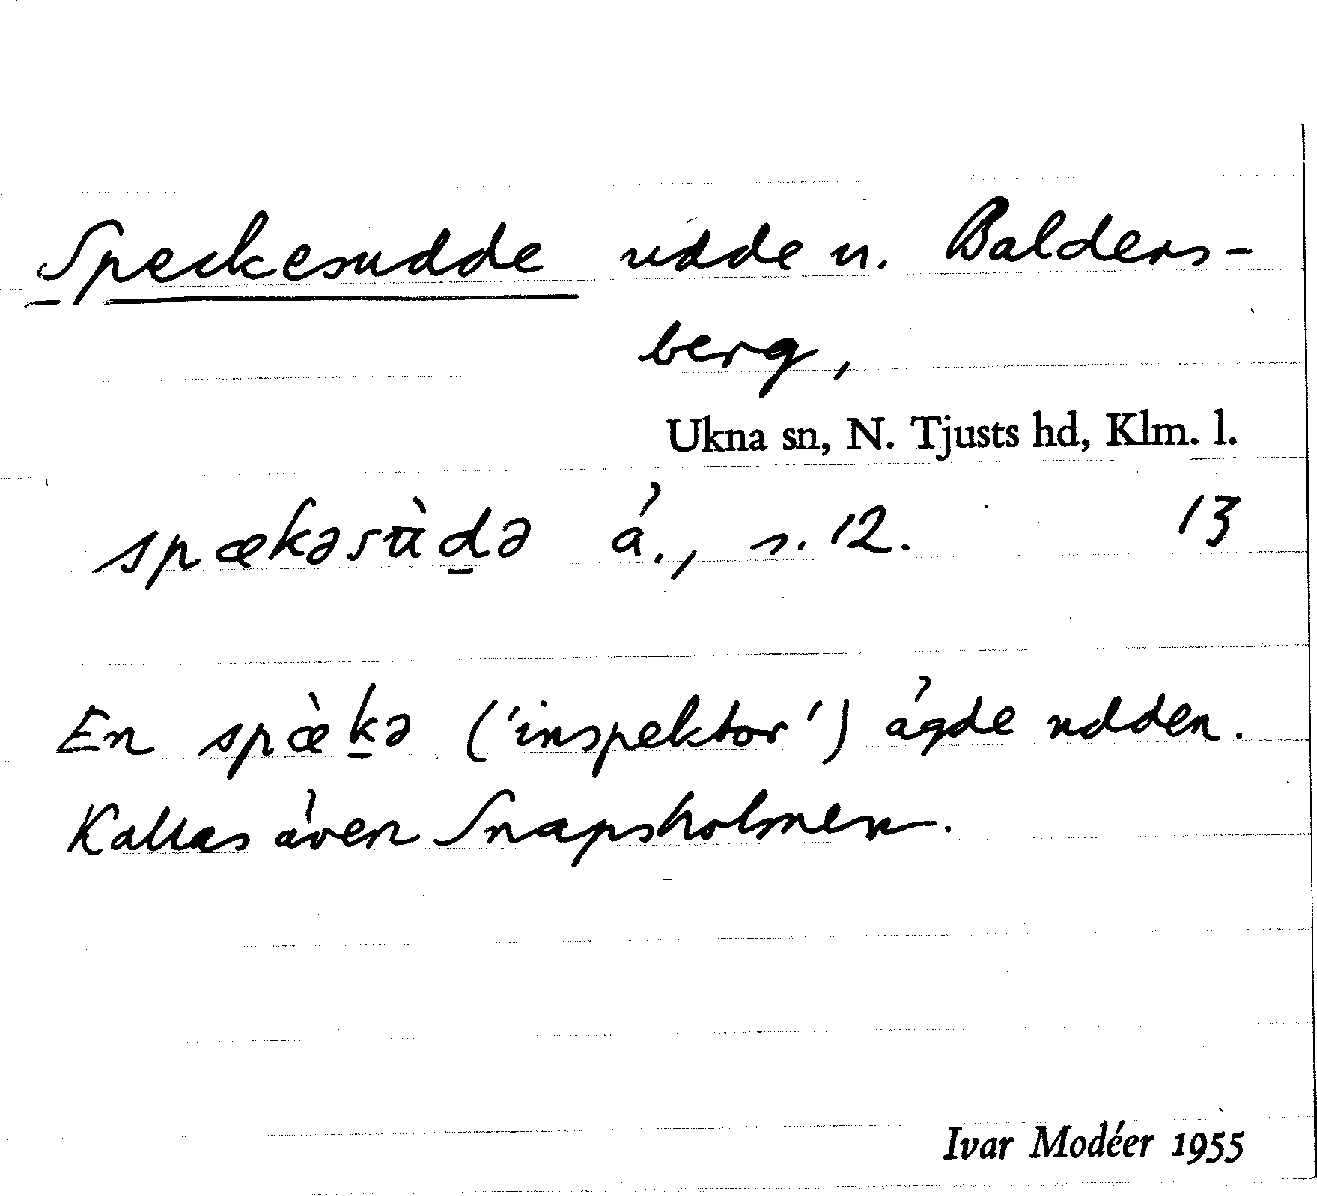 Speckesudde udde u. Balders-
berg,
Ukna sn, N. Tjusts hd, Klm. l.
spækəsùdə å., s. 12. 13
En spæ̀kə ('inspektor') ägde udden.
Kallas även Snapsholmen.
Ivar Modéer 1955